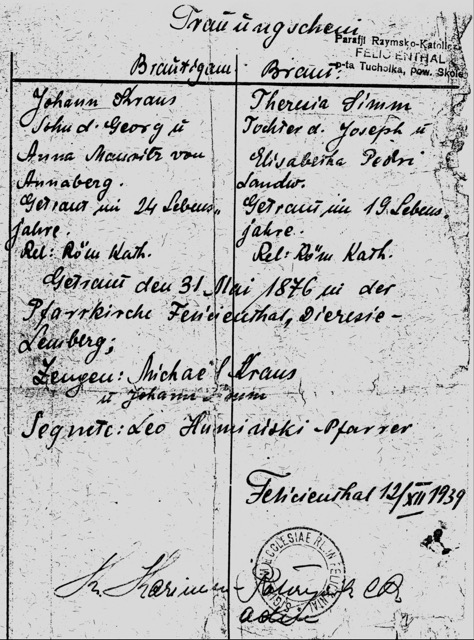 Trauungschein
Parafji Rzymsko-Katolic
FELICIENTHAL
p-ta Tucholka, pow. Skole
Bräutigam: Braut:
Johann Kraus
Sohn d. Georg u
Anna Mauritz von
Annaberg.
Getraut im 24 Lebens-
jahre.
Rel: Röm Kath.
Theresia Simm
Tochter d. Joseph u
Elisabetha Pedri
Landw.
Getraut im 19. Lebens
jahre.
Rel: Röm Kath.
Getraut den 31 Mai 1876 in der
Pfarrkirche Felicienthal, Dieresie-
Lemberg;
Zeugen: Michael Kraus
u Johann Simm
Segnete: Leo Humiaiski - Pfarrer
Felicienthal 12/XII 1939
ECCLESIAE